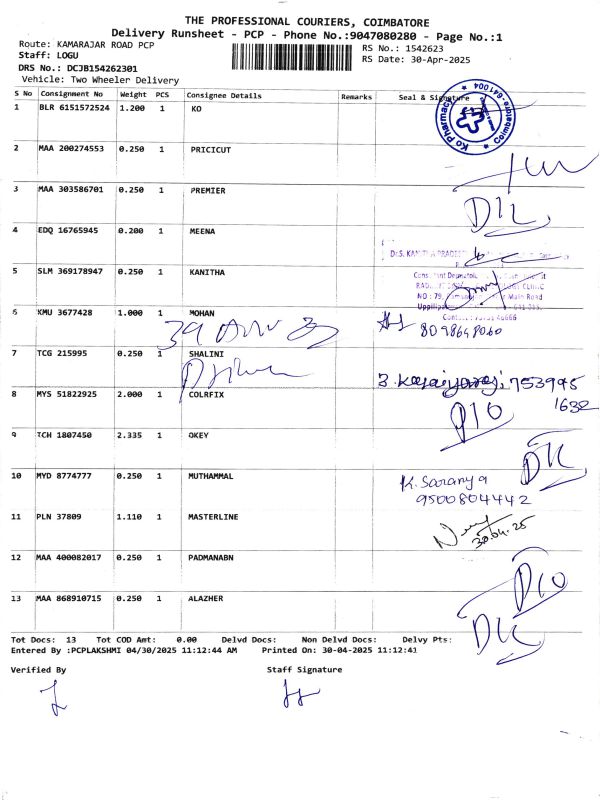 THE PROFESSIONAL COURIERS, COIMBATORE
Delivery Runsheet - PCP - Phone No.:9047080280 - Page No.:1
Route: KAMARAJAR ROAD PCP
RS No.: 1542623
Staff: LOGU
RS Date: 30-Apr-2025
DRS No.: DCJB154262301
Vehicle: Two Wheeler Delivery
S No Consignment No Weight PCS Consignee Details Remarks Seal & Signature
1 BLR 6151572524 1.200 1 KO
Ko Pharmacy * Coimbatore-641004 *
2 MAA 200274553 0.250 1 PRICICUT
3 MAA 303586701 0.250 1 PREMIER
4 EDQ 16765945 0.200 1 MEENA
5 SLM 369178947 0.250 1 KANITHA
NO : 79, Main Road
6 KMU 3677428 1.000 1 MOHAN
8098698060
7 TCG 215995 0.250 1 SHALINI
753995
1632
8 MYS 51822925 2.000 1 COLRFIX
9 TCH 1807450 2.335 1 OKEY
10 MYD 8774777 0.250 1 MUTHAMMAL
K. Saranya
9500804442
11 PLN 37809 1.110 1 MASTERLINE
30.04.25
12 MAA 400082017 0.250 1 PADMANABN
13 MAA 868910715 0.250 1 ALAZHER
Tot Docs: 13 Tot COD Amt: 0.00 Delvd Docs: Non Delvd Docs: Delvy Pts:
Entered By :PCPLAKSHMI 04/30/2025 11:12:44 AM Printed On: 30-04-2025 11:12:41
Verified By Staff Signature